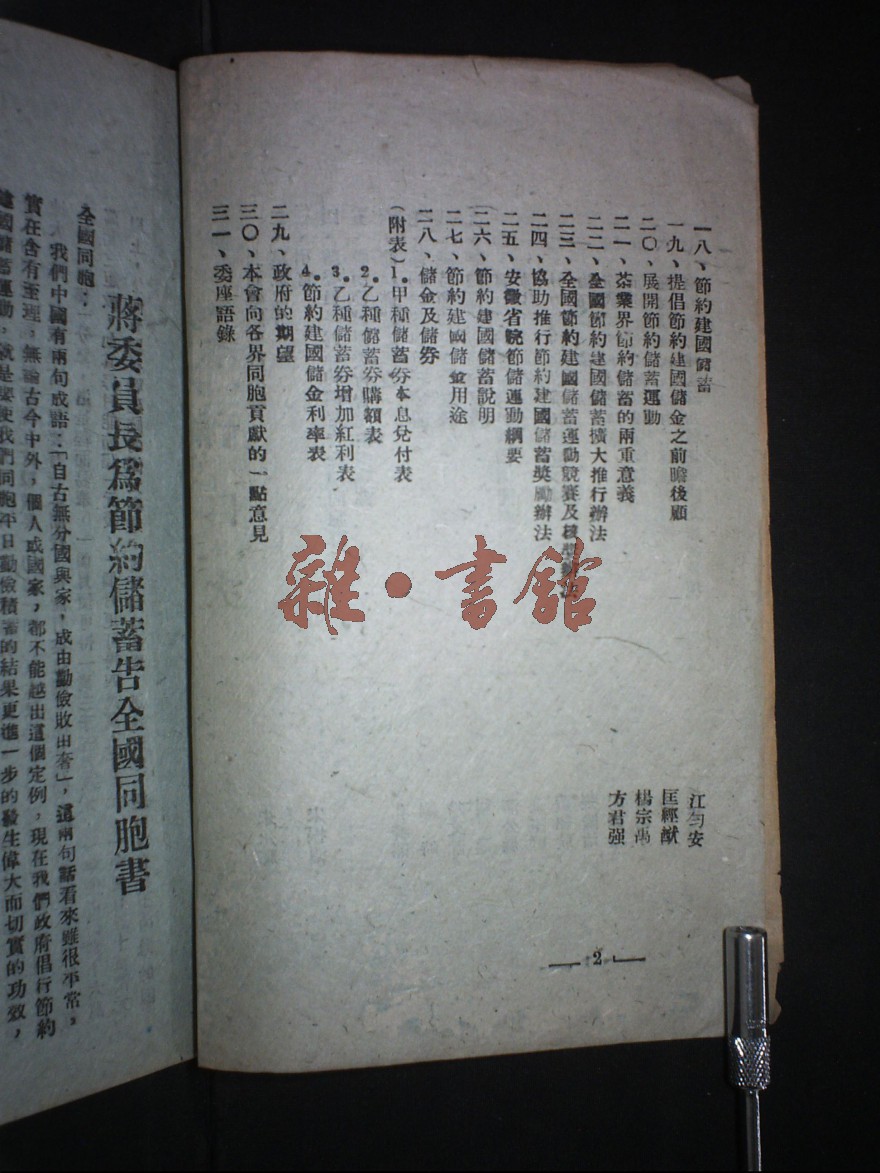 一八、節約建國儲蓄
江勻安
一九、提倡節約建國儲金之前瞻後顧
匡經猷
二〇、展開節約儲蓄運動
楊宗禹
二一、茶業界節約儲蓄的兩重意義
方君强
二二、全國節約建國儲蓄擴大推行辦法
二三、全國節約建國儲蓄運動競賽及
二四、協助推行節約建國儲蓄獎勵辦法
二五、安徽省節儲運動綱要
二六、節約建國儲蓄說明
二七、節約建國儲金用途
二八、儲金及儲劵
(附表)1.甲種儲蓄劵本息兌付表
2.乙種儲蓄劵購額表
3.乙種儲蓄劵增加紅利表
4.節約建國儲金利率表
二九、政府的期望
三〇、本會向各界同胞貢獻的一點意見
三一、委座語錄
2
雜·書館
蔣委員長爲節約儲蓄告全國同胞書
全國同胞:
我們中國有兩句成語:「自古無分國與家,成由勤儉敗由奢」,這兩句話看來雖很平常,
實在含有至理,無論古今中外,個人或國家,都不能越出這個定例,現在我們政府倡行節約
建國儲蓄運動,就是要使我們同胞平日勤儉積蓄的結果更進一步的發生偉大而切實的功效,